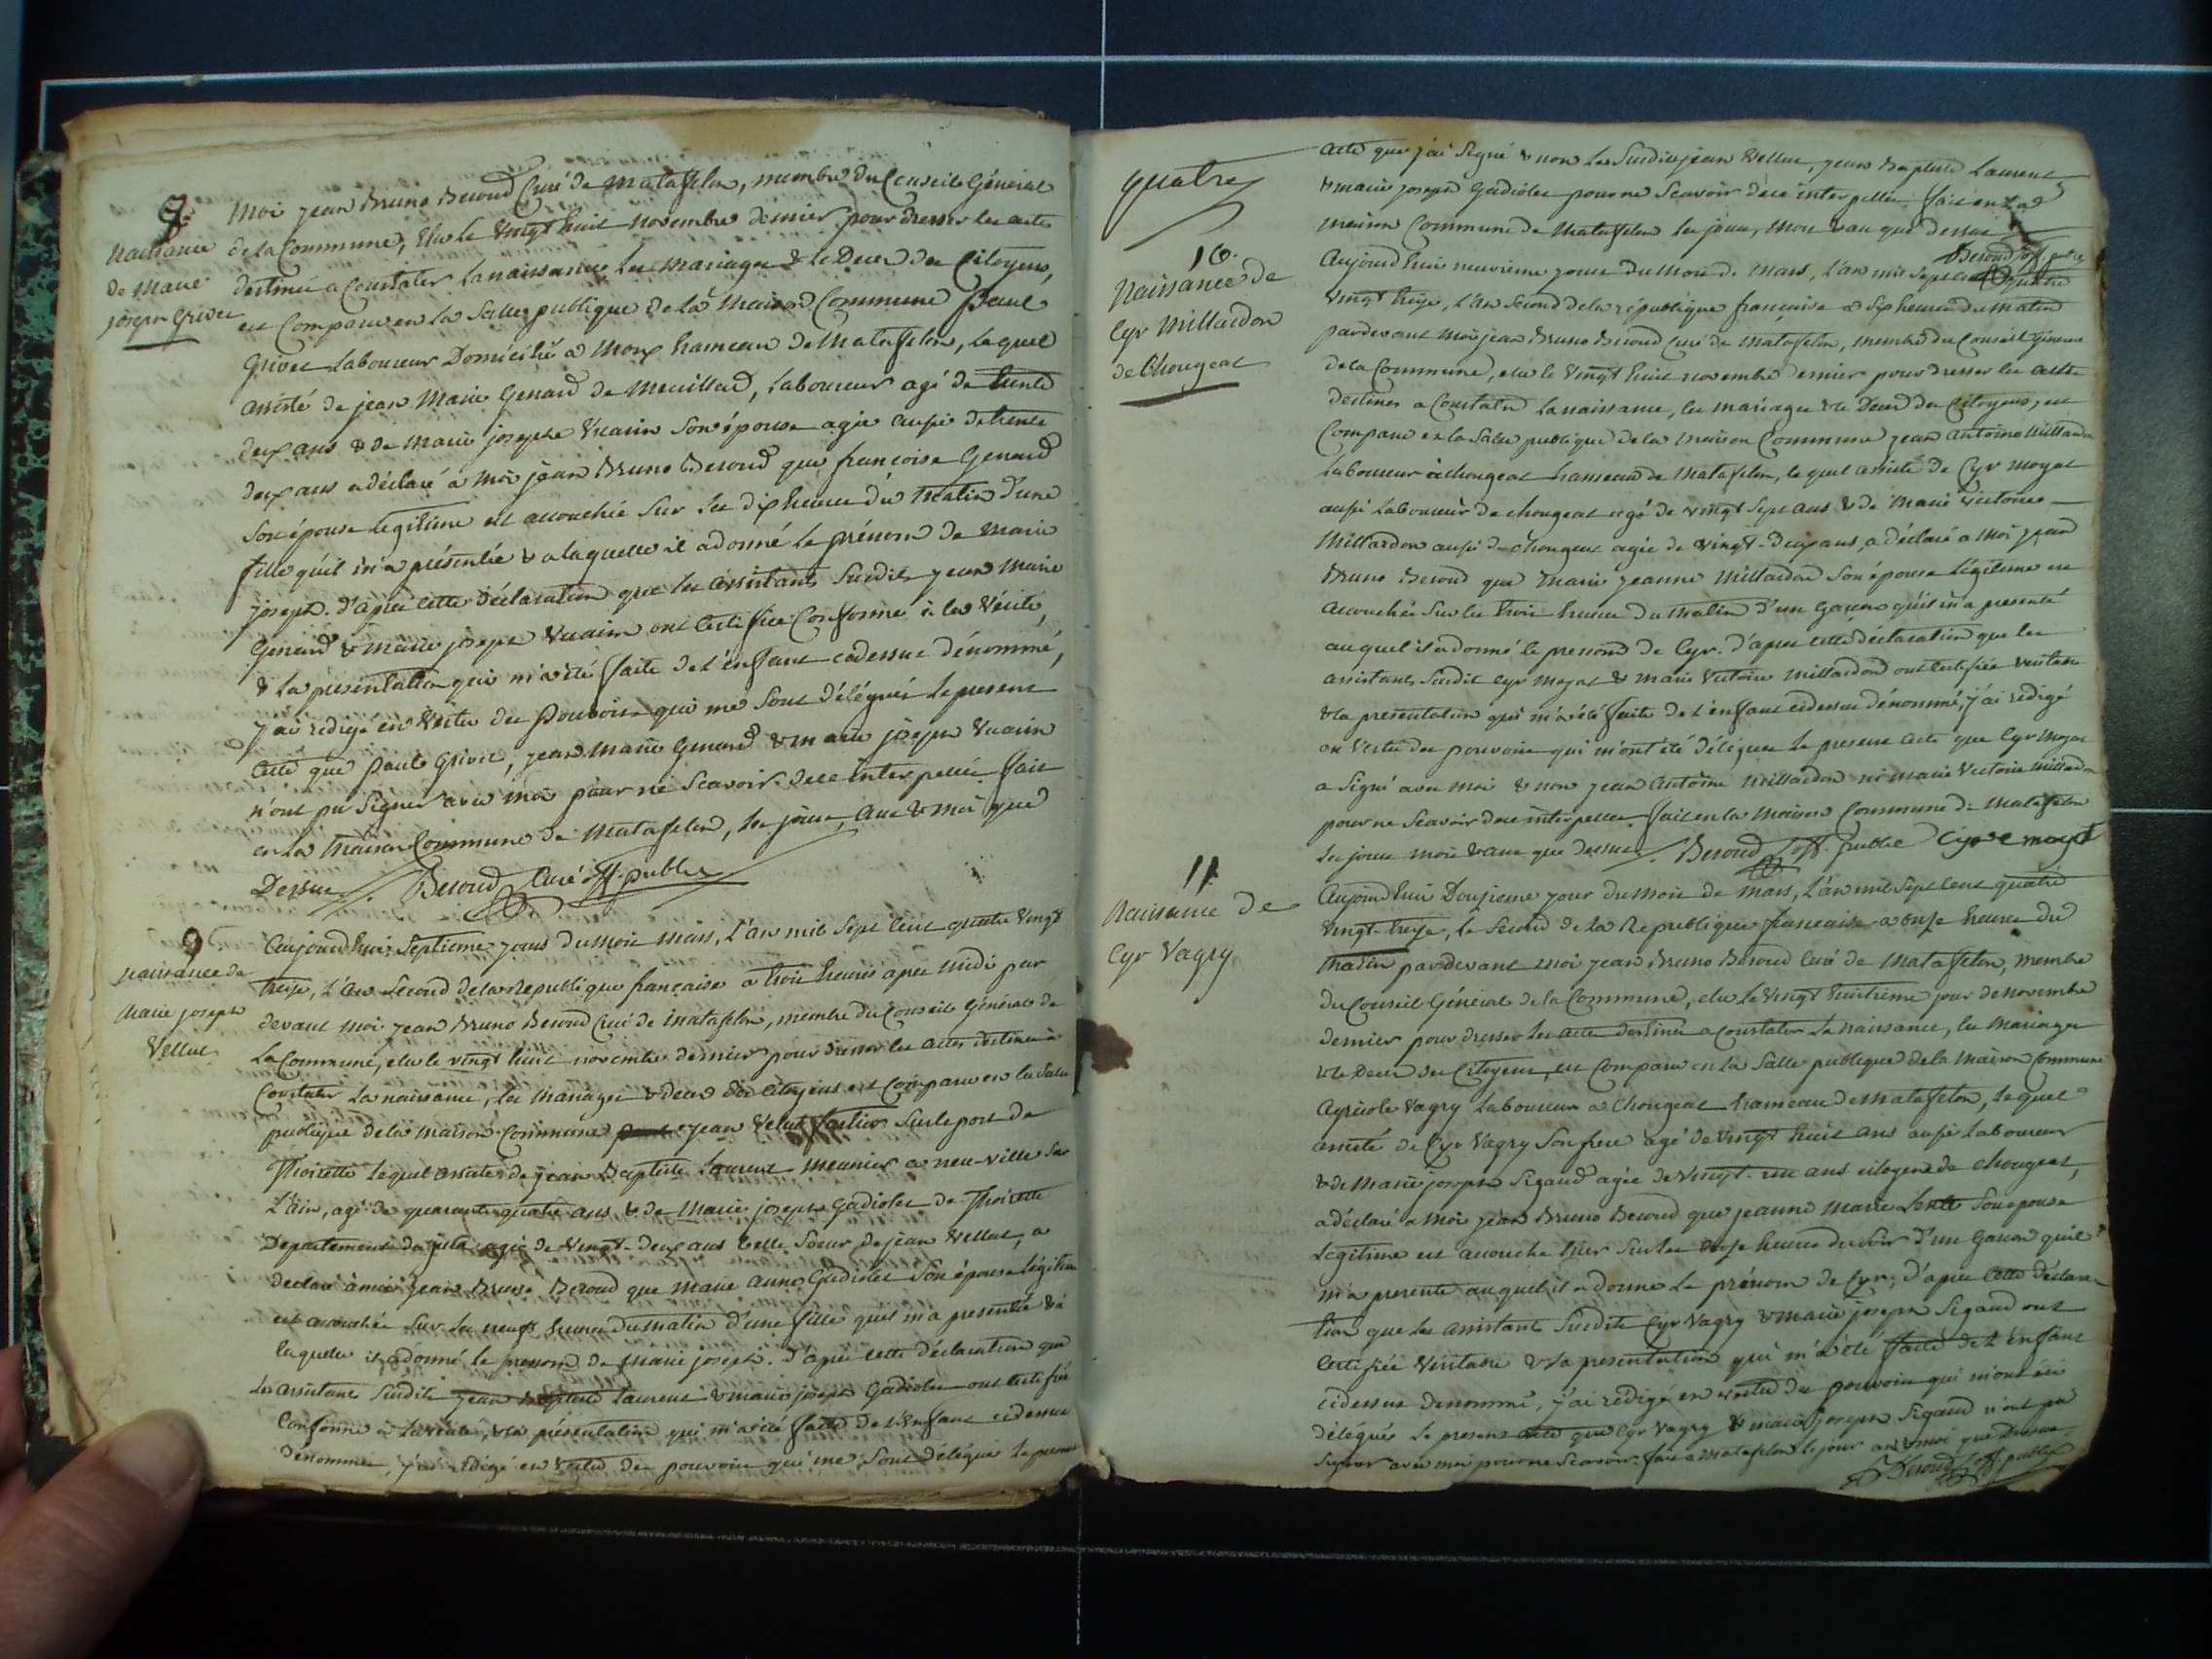 8.
Naissance
de Marie
joseph Grivet
Moi jean Bruno Beroud Curé de Matafelon, membre du Conseil Général
de la Commune, Elu le Vingt huit novembre dernier pour dresser les actes
destinés a Constater la naissance, les Mariages & le Deces des Citoyens,
est Comparu en la Salle publique de la Maison Commune Paul
Grivet Laboureur Domicilié a Monx hameau de Matafelon, lequel
assisté de jean Marie Genard de Meuillad, laboureur agé de trente
deux ans & de Marie josephe Vuarin son épouse agée aussi de trente
deux ans a déclaré à Moi jean Bruno Beroud que francoise Genard
son épouse legitime est accouchée sur les dix heures du Matin d'une
fille qu'il m'a présentée & a laquelle il a donné le prénom de Marie
joseph. d'après cette déclaration que les assistants Susdits jean Marie
Genard & Marie joseph Vuarin ont Certifiée Conforme à la Vérité,
& la presentation qui m'a été faite de l'enfant cidessus dénommé,
j'ai redigé en Vertu des Pouvoirs qui me sont délégués le present
acte que Paul Grivet, jean Marie Genard & Marie joseph Vuarin
n'ont pu Signer avec moi pour ne Scavoir de ce interpellés fait
en la Maison Commune de Matafelon, les jour, an & moi que
Dessus /. Beroud Curé off. public
9.
Naissance de
Marie joseph
Vellut
Aujourd'hui Septieme jour du mois Mars, l'an mil Sept Cent quatre Vingt
treize, l'an Second de la Republique française a trois heures apres Midi par
devant Moi jean Bruno Beroud Curé de Matafelon, membre du Conseil Général de
la Commune, elu le vingt huit novembre dernier pour dresser les actes destinés à
Constater la naissance, les Mariages & deces des Citoyens est Comparu en la Salle
publique de la Maison Commune jean Vellut sur le port de
Thoirette lequel assisté de jean Baptiste Laurent Meunier a neu-ville sur
l'ain, agé de quarante quatre ans & de Marie joseph Gadiolet de Thoirette
Departement du jura agée de Vingt-deux ans belle Soeur de jean Vellut, a
declaré à moi jean Bruno Beroud que Marie anne Gadiolet Son épouse légitime
est accouchée Sur les neuf heures du Matin d'une fille qu'il m'a presentée & à
laquelle il a donné le prenom de Marie joseph. d'après cette déclaration que
les assistants Susdits jean Baptiste Laurent & Marie joseph Gadiolet ont certifiée
Conforme a la verité, & la présentation qui m'a été faite de l'Enfant cidessus
dénommé, j'ai redigé en Vertu des pouvoirs qui me Sont délégués le present
quatre
acte que j'ai Signé & non les Susdits jean Vellut, jean Baptiste Laurent
& Marie joseph Gadiolet pour ne Scavoir de ce interpellés. fait en la
maison Commune de Matafelon les jour, Mois & an que dessus
Beroud off. public
10.
Naissance de
Cyr Millardon
de Chougeat
Aujourd'hui neuvieme jour du Mois de Mars, l'an mil Sept Cent quatre
vingt treize, l'an Second de la république française a Sept heures du Matin
pardevant Moi jean Bruno Beroud Curé de Matafelon, membre du Conseil Général
de la Commune, elu le Vingt huit novembre dernier pour dresser les actes
destinés a Constater la naissance, les mariages & le Deces des Citoyens, est
Comparu en la Salle publique de la Maison Commune jean Antoine Millardon
laboureur à Chougeat hameau de Matafelon, lequel assisté de Cyr Moyat
aussi Laboureur de Chougeat agé de vingt Sept ans & de Marie Victoire
Millardon aussi de Chougeat agée de Vingt-deux ans, a déclaré a Moi jean
Bruno Beroud que Marie jeanne Millardon Son épouse légitime est
accouchée Sur les trois heures du Matin d'un Garçon qu'il m'a presenté
auquel il a donné le prenom de Cyr. d'apres cette déclaration que les
assistants Susdits Cyr Moyat & Marie Victoire Millardon ont certifiée Veritable
& la presentation qui m'a été faite de l'enfant cidessus dénommé, j'ai redigé
en Vertu des pouvoirs qui m'ont été délégués le present acte que Cyr Moyat
a Signé avec Moi & non jean Antoine Millardon ni Marie Victoire Millardon
pour ne Scavoir de ce interpellés. fait en la Maison Commune de Matafelon
les jour mois & an que dessus /. Beroud off. public Cyre moyat
11
Naissance de
Cyr Vagry
Aujourd'hui Douzieme jour du Mois de Mars, l'an mil Sept Cent quatre
Vingt-treize, le Second de la Republique française a onze heures du
Matin pardevant Moi jean Bruno Beroud Curé de Matafelon, membre
du Conseil Général de la Commune, elu le Vingt huitieme jour de Novembre
dernier pour dresser les actes destinés a Constater la Naissance, les Mariages
& le Deces des Citoyens, est Comparu en la Salle publique de la Maison Commune
Agricole Vagry Laboureur a Chougeat hameau de Matafelon, lequel
assisté de Cyr Vagry Son frere agé de Vingt huit ans aussi Laboureur
& de Marie joseph Sigaud agée de Vingt-un ans citoyens de Chougeat,
a déclaré a Moi jean Bruno Beroud que jeanne Marie Son épouse
Légitime est accouchée hier Sur les onze heures du Soir d'un Garçon qu'il
m'a presenté auquel il a donné le prénom de Cyr, d'apres cette déclara-
tion que les assistants Susdits Cyr Vagry & Marie joseph Sigaud ont
Certifiée Véritable & la presentation qui m'a été faite de l'Enfant
cidessus dénommé, j'ai redigé en vertu des pouvoirs qui m'ont été
délégués le present acte que Cyr Vagry & Marie joseph Sigaud n'ont pu
Signer avec moi pour ne Scavoir. fait a Matafelon le jour an & moi que Dessus.
Beroud off. public